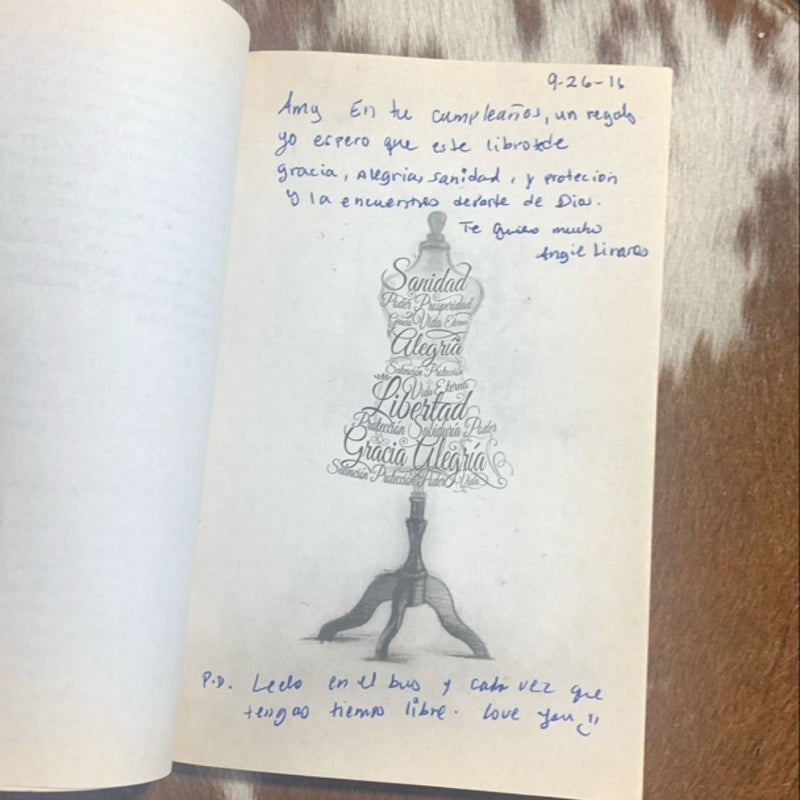 9-26-16
Amy En tu cumpleaños, un regalo
yo espero que este libro de
gracia, Alegria, sanidad, y protecion
y la encuentres departe de Dios.
Te quiero mucho
Angie Linares
Sanidad
Poder Prosperidad
Gracia Vida Eterna
Alegría
Salvación Protección
Vida Eterna
Libertad
Protección Sabiduría Poder
Gracia Alegría
Salvación Protección Poder Vida
P.D. Leelo en el bus y cada vez que
tengas tiempo libre. Love you